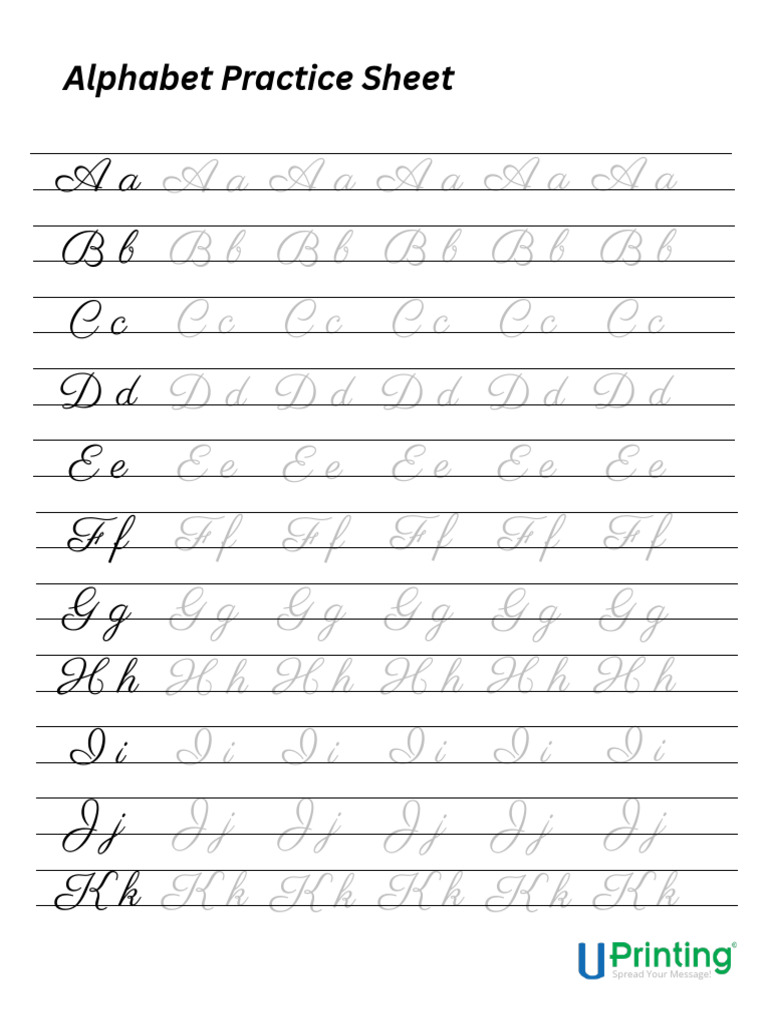 Alphabet Practice Sheet
A a A a A a A a A a A a
B b B b B b B b B b B b
C c C c C c C c C c C c
D d D d D d D d D d D d
E e E e E e E e E e E e
F f F f F f F f F f F f
G g G g G g G g G g G g
H h H h H h H h H h H h
I i I i I i I i I i I i
J j J j J j J j J j J j
K k K k K k K k K k K k
UPrinting©
Spread Your Message!